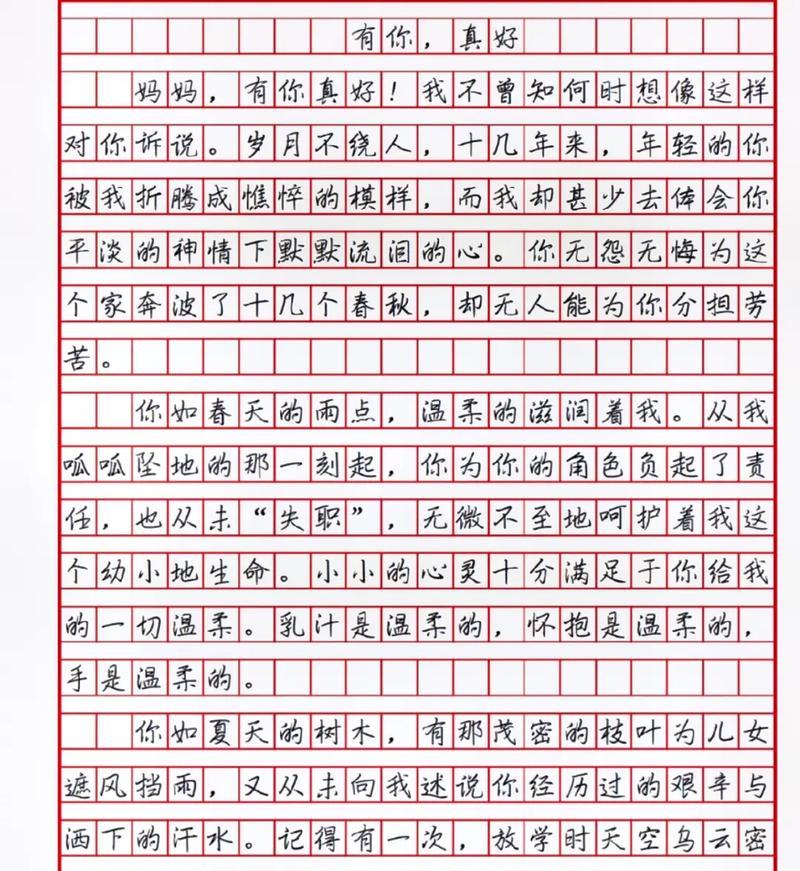 有你，真好
妈妈，有你真好！我不曾知何时想像这样
对你诉说。岁月不绕人，十几年来，年轻的你
被我折腾成憔悴的模样，而我却甚少去体会你
平淡的神情下默默流泪的心。你无怨无悔为这
个家奔波了十几个春秋，却无人能为你分担劳
苦。
你如春天的雨点，温柔的滋润着我。从我
呱呱坠地的那一刻起，你为你的角色负起了责
任，也从未“失职”，无微不至地呵护着我这
个幼小地生命。小小的心灵十分满足于你给我
的一切温柔。乳汁是温柔的，怀抱是温柔的，
手是温柔的。
你如夏天的树木，有那茂密的枝叶为儿女
遮风挡雨，又从未向我述说你经历过的艰辛与
洒下的汗水。记得有一次，放学时天空乌云密